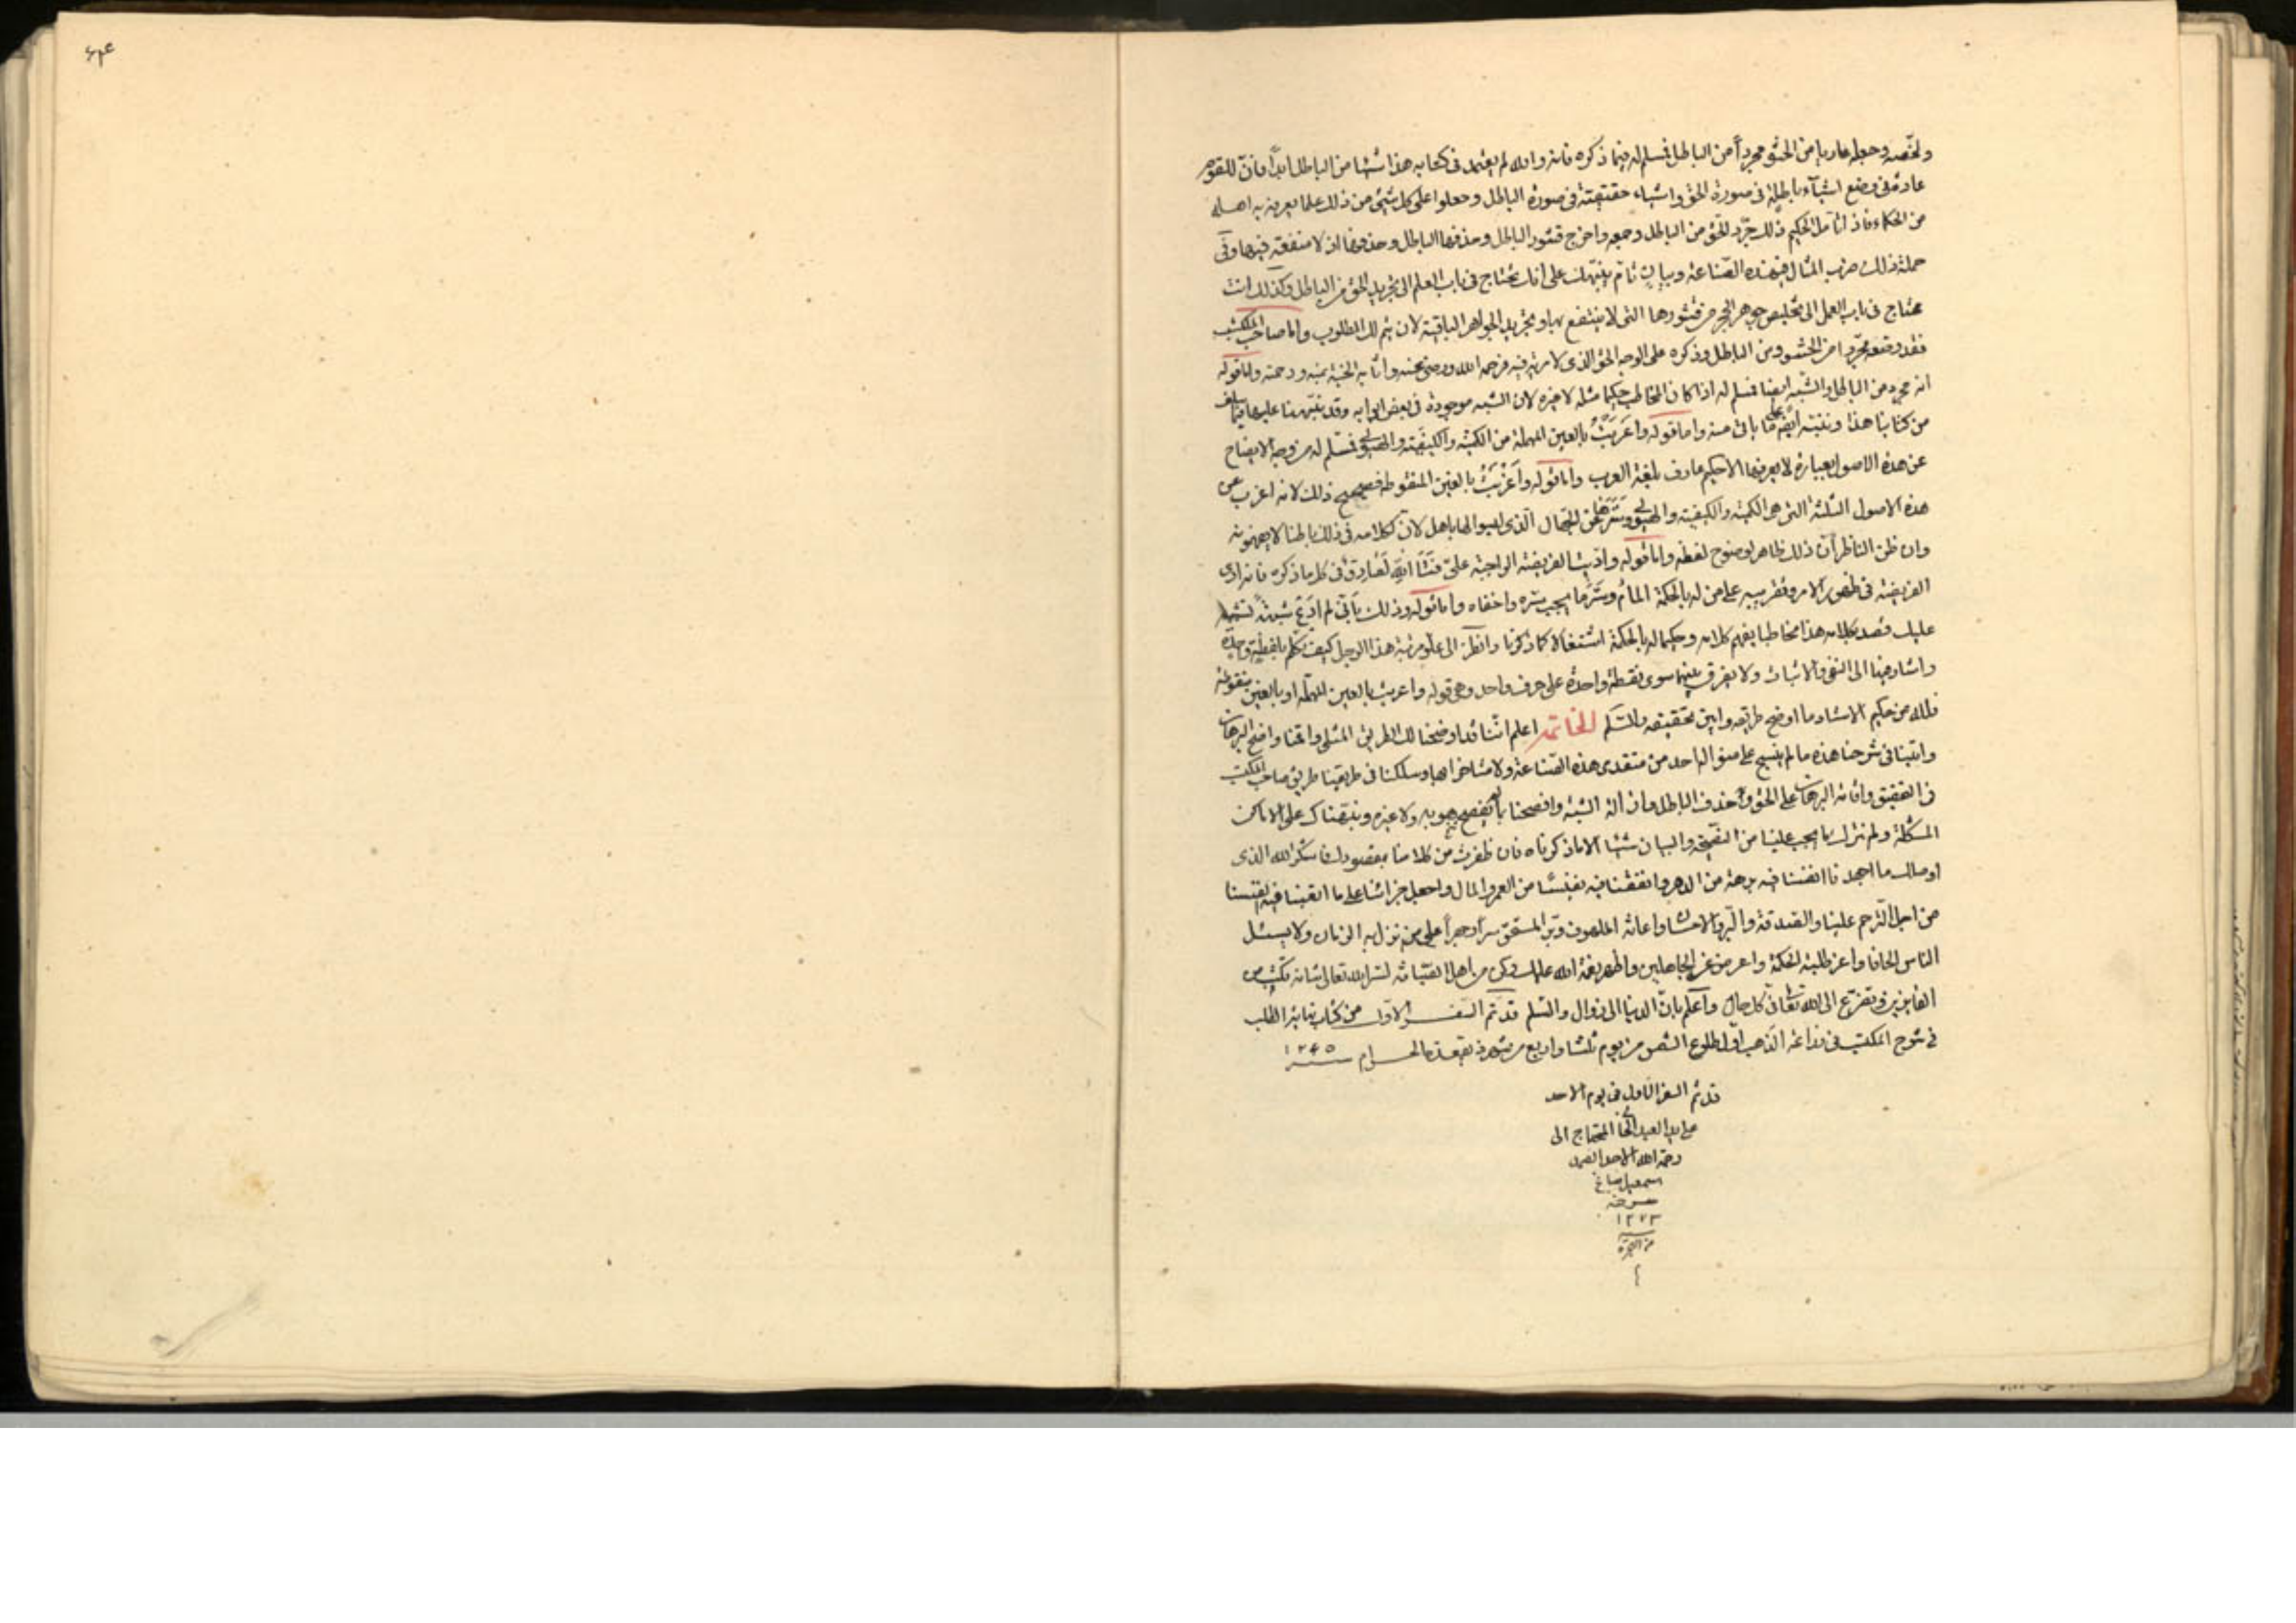 ولخصه وجعله عاريا من الحشو مجرداً من الباطل فسلم له فيما ذكره فانه والله لم يعتمد فى كتابه هذا شيئا من الباطل ابداً فانّ للقوم
عادة فى وضع اشيآء باطلة فى صورة الحق واشياء حقيقية فى صورة الباطل وجعلوا على كل شيئ من ذلك علما يعرفه به اهله
من الحكماء فاذا تأمل الحكيم ذلك جرّد الحق من الباطل وجمعه واخرج قشور الباطل وحذفها اذ لا منفعة فيها وفى
جملة ذلك ضرب المثال فى هذه الصّناعة وبيان تام ينبّهك على انك تحتاج فى باب العلم الى تجريد الحق من الباطل وكذلك انت
محتاج فى باب العمل الى تخليص جوهر الحجر من قشورها التى لا ينتفع بها وتجريد الجواهر الباقية لان يتم لك المطلوب وامّا صاحب المكتسب
فقد وضعه مجرّدا من الحشو ومن الباطل وذكره على الوجه الحق الذى لا مرية فيه فرحمه الله ورضى عنه واثابه الجنّة بمنه ورحمته وامّا قوله
انه مجرد من الباطل والشّبه ايضا فسلم له اذا كان المخاطب حكيما مثله لا غيره لان الشبه موجودة فى بعض ابوابه وقد نبّهنا عليها فيما سلف
من كتابنا هذا وننبّه ايضا على ما يأتى منه واما قوله واعربتُ بالعين المهملة من الكمية والكيفية والهيولى فسلّم له من وجه الايضاح
عن هذه الاصول بعبارة لا يعرفها الا حكيم عارف بلغة العرب وامّا قوله وأغربتُ بالغين المنقوطة فصحيح ذلك لانه اغرب عن
هذه الاصول الثلثة التى هى الكمية والكيفية والهيولى وسترها عن الجهال الذى ليسوا لها باهل لان كلامه فى ذلك باطنا لا يفهمونه
وان ظن الناظر أن ذلك ظاهر لوضوح لفظه واما قوله واديت الفريضة الواجبة علىّ فتالله انه لصادق فى كل ما ذكره فانه ادى
الفريضة فى ظهور الامر وتقريبه على من له بالحكمة المام وستر ما يجب ستره واخفاه واما قوله وذلك بأنّى لم ادع شبهة تشتبه
عليك فقصد بكلامه هذا مخاطبا يفهم كلامه وحكيما له بالحكمة اشتغالا كما ذكرنا وانظر الى علو مرتبة هذا الرجل كيف تكلم بلفظة واحدة
واشار فيها الى النفى والاثبات ولا يفرق بينهما سوى نقطة واحدة على حرف واحد وهى قوله واعربت بالعين المهملة او بالغين منقوطة
فلله من حكيم الاستاد ما اوضح طريقه وابين تحقيقه والسّلم الخاتمه اعلم انّنا قد اوضحنا لك الطريق المثلى واقمنا واضح البرهان
واتينا فى شرحنا هذه ما لم ينسج على منواله احد من متقدمى هذه الصّناعة ولا متاخرا بها وسلكنا فى طريقنا طريق صاحب المكتسب
فى التحقيق واقامة البرهان على الحق وحذف الباطل وازالة الشبه وافصحنا بما لم يفصح هو به ولا غيره ونبّهناك على الاماكن
المشكلة ولم نترك مما يجب علينا من النّصيحة والبيان شيئا الا ما ذكرناه فان ظفرت من كلامنا بمقصودك فاشكر الله الذى
اوصالك ما اجهدنا انفسنا فيه برهة من الدهر وانفقنا فيه نفيسًا من العمر والمال واجعل جزائنا على ما اتعبنا فيه انفسنا
من اجل التّرحم علينا والصدقة والبر والاحسان واعانة الملهوف وبر المستحق سراً وجهراً على من نزل به الزمان ولا يسئل
الناس الحافا واعز طلبة الحكمة واعرض عن الجاهلين واظهر نعمة الله عليك وكن من اهل الصّيانة لستر الله تعالى شانه تكن من
الفايزين وتضرّع الى الله تعالى فى كل حال واعلم بانّ الدنيا الى زوال والسّلم قد تمّ السّفر الاوّل من كتاب نهاية الطلب
فى شرح المكتسب فى زراعة الذهب اوّل طلوع الشمس من يوم ثلثا واربع من شهر ذيقعدة الحرام سنه ١٢٤٥
قد تم السفر الاول فى يوم الاحد
على يد العبد الجانى المحتاج الى
رحمة الله الاحد الصمد
اسمعيل صباغ
سنه
١٢٧٣
من الهجرة